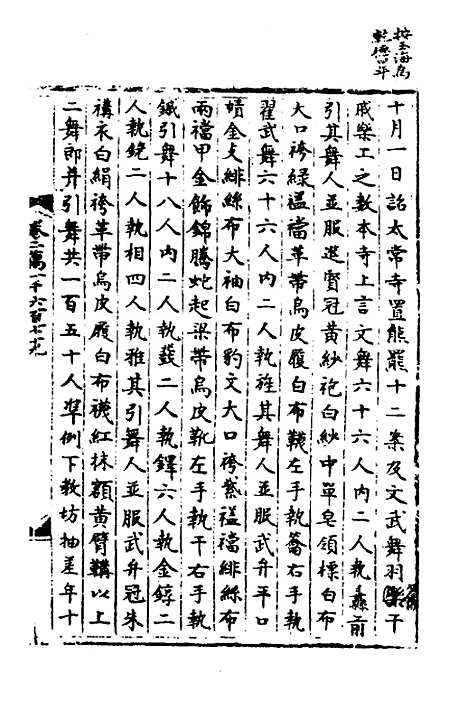 按玉海為
乾德四年
十月一日詔太常寺置熊羆十二案及文武舞羽籥干
戚樂工之數本寺上言文舞六十六人內二人執纛前
引其舞人並服進賢冠黃紗袍白紗中單皂領褾白布
大口袴綠䘿襠革帶烏皮履白布襪左手執籥右手執
翟武舞六十六人內二人執旌其舞人並服武弁平口
幘金支緋絲布大袖白布豹文大口袴紫䘿襠緋絲布
兩襠甲金飾錦騰蛇起梁帶烏皮靴左手執干右手執
鏚引舞十八人內二人執鼗二人執鐸六人執金錞二
人執鐃二人執相四人執雅其引舞人並服武弁冠朱
褠衣白絹袴革帶烏皮履白布襪紅抹額黃臂鞲以上
二舞郎并引舞共一百五十人準例下教坊抽差年十
卷二萬一千六百七十九